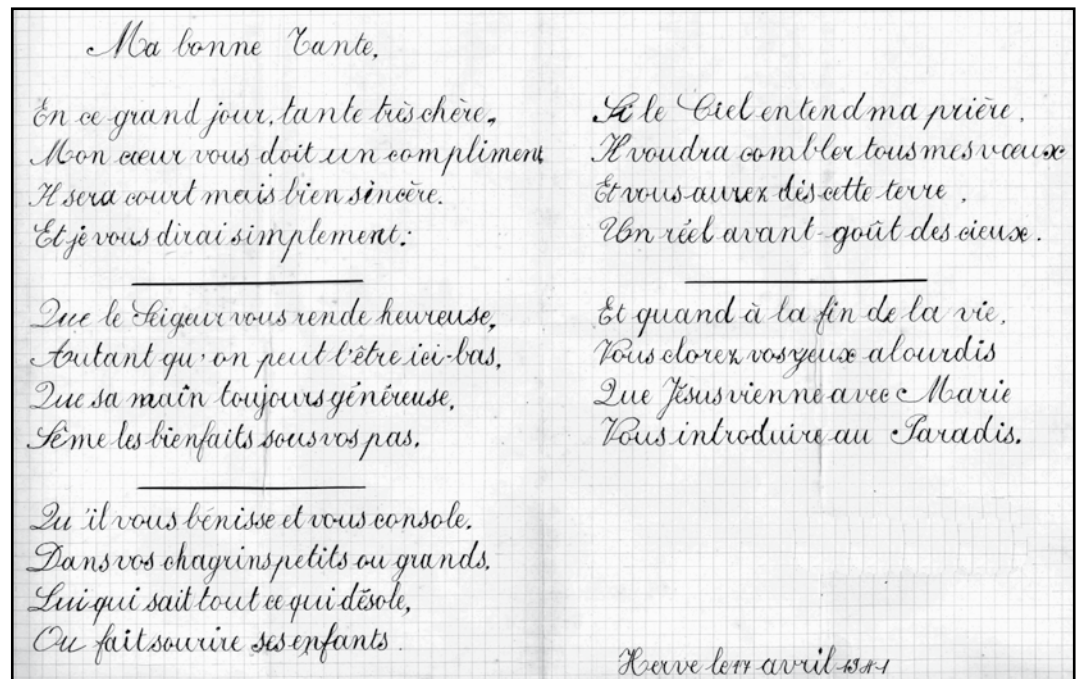 Ma bonne Tante,
En ce grand jour, tante très chère,
Mon cœur vous doit un compliment
Il sera court mais bien sincère.
Et je vous dirai simplement:
Que le Seigeur vous rende heureuse,
Autant qu'on peut l'être ici-bas,
Que sa main toujours généreuse,
Sême les bienfaits sous vos pas.
Qu'il vous bénisse et vous console.
Dans vos chagrins petits ou grands.
Lui qui sait tout ce qui désole,
Ou fait sourire ses enfants.
Si le Ciel entend ma prière,
Il voudra combler tous mes vœux
Et vous aurez dès cette terre,
Un réel avant-goût des cieux.
Et quand à la fin de la vie,
Vous clorez vos yeux alourdis
Que Jésus vienne avec Marie
Vous introduire au Paradis.
Herve le 17 avril